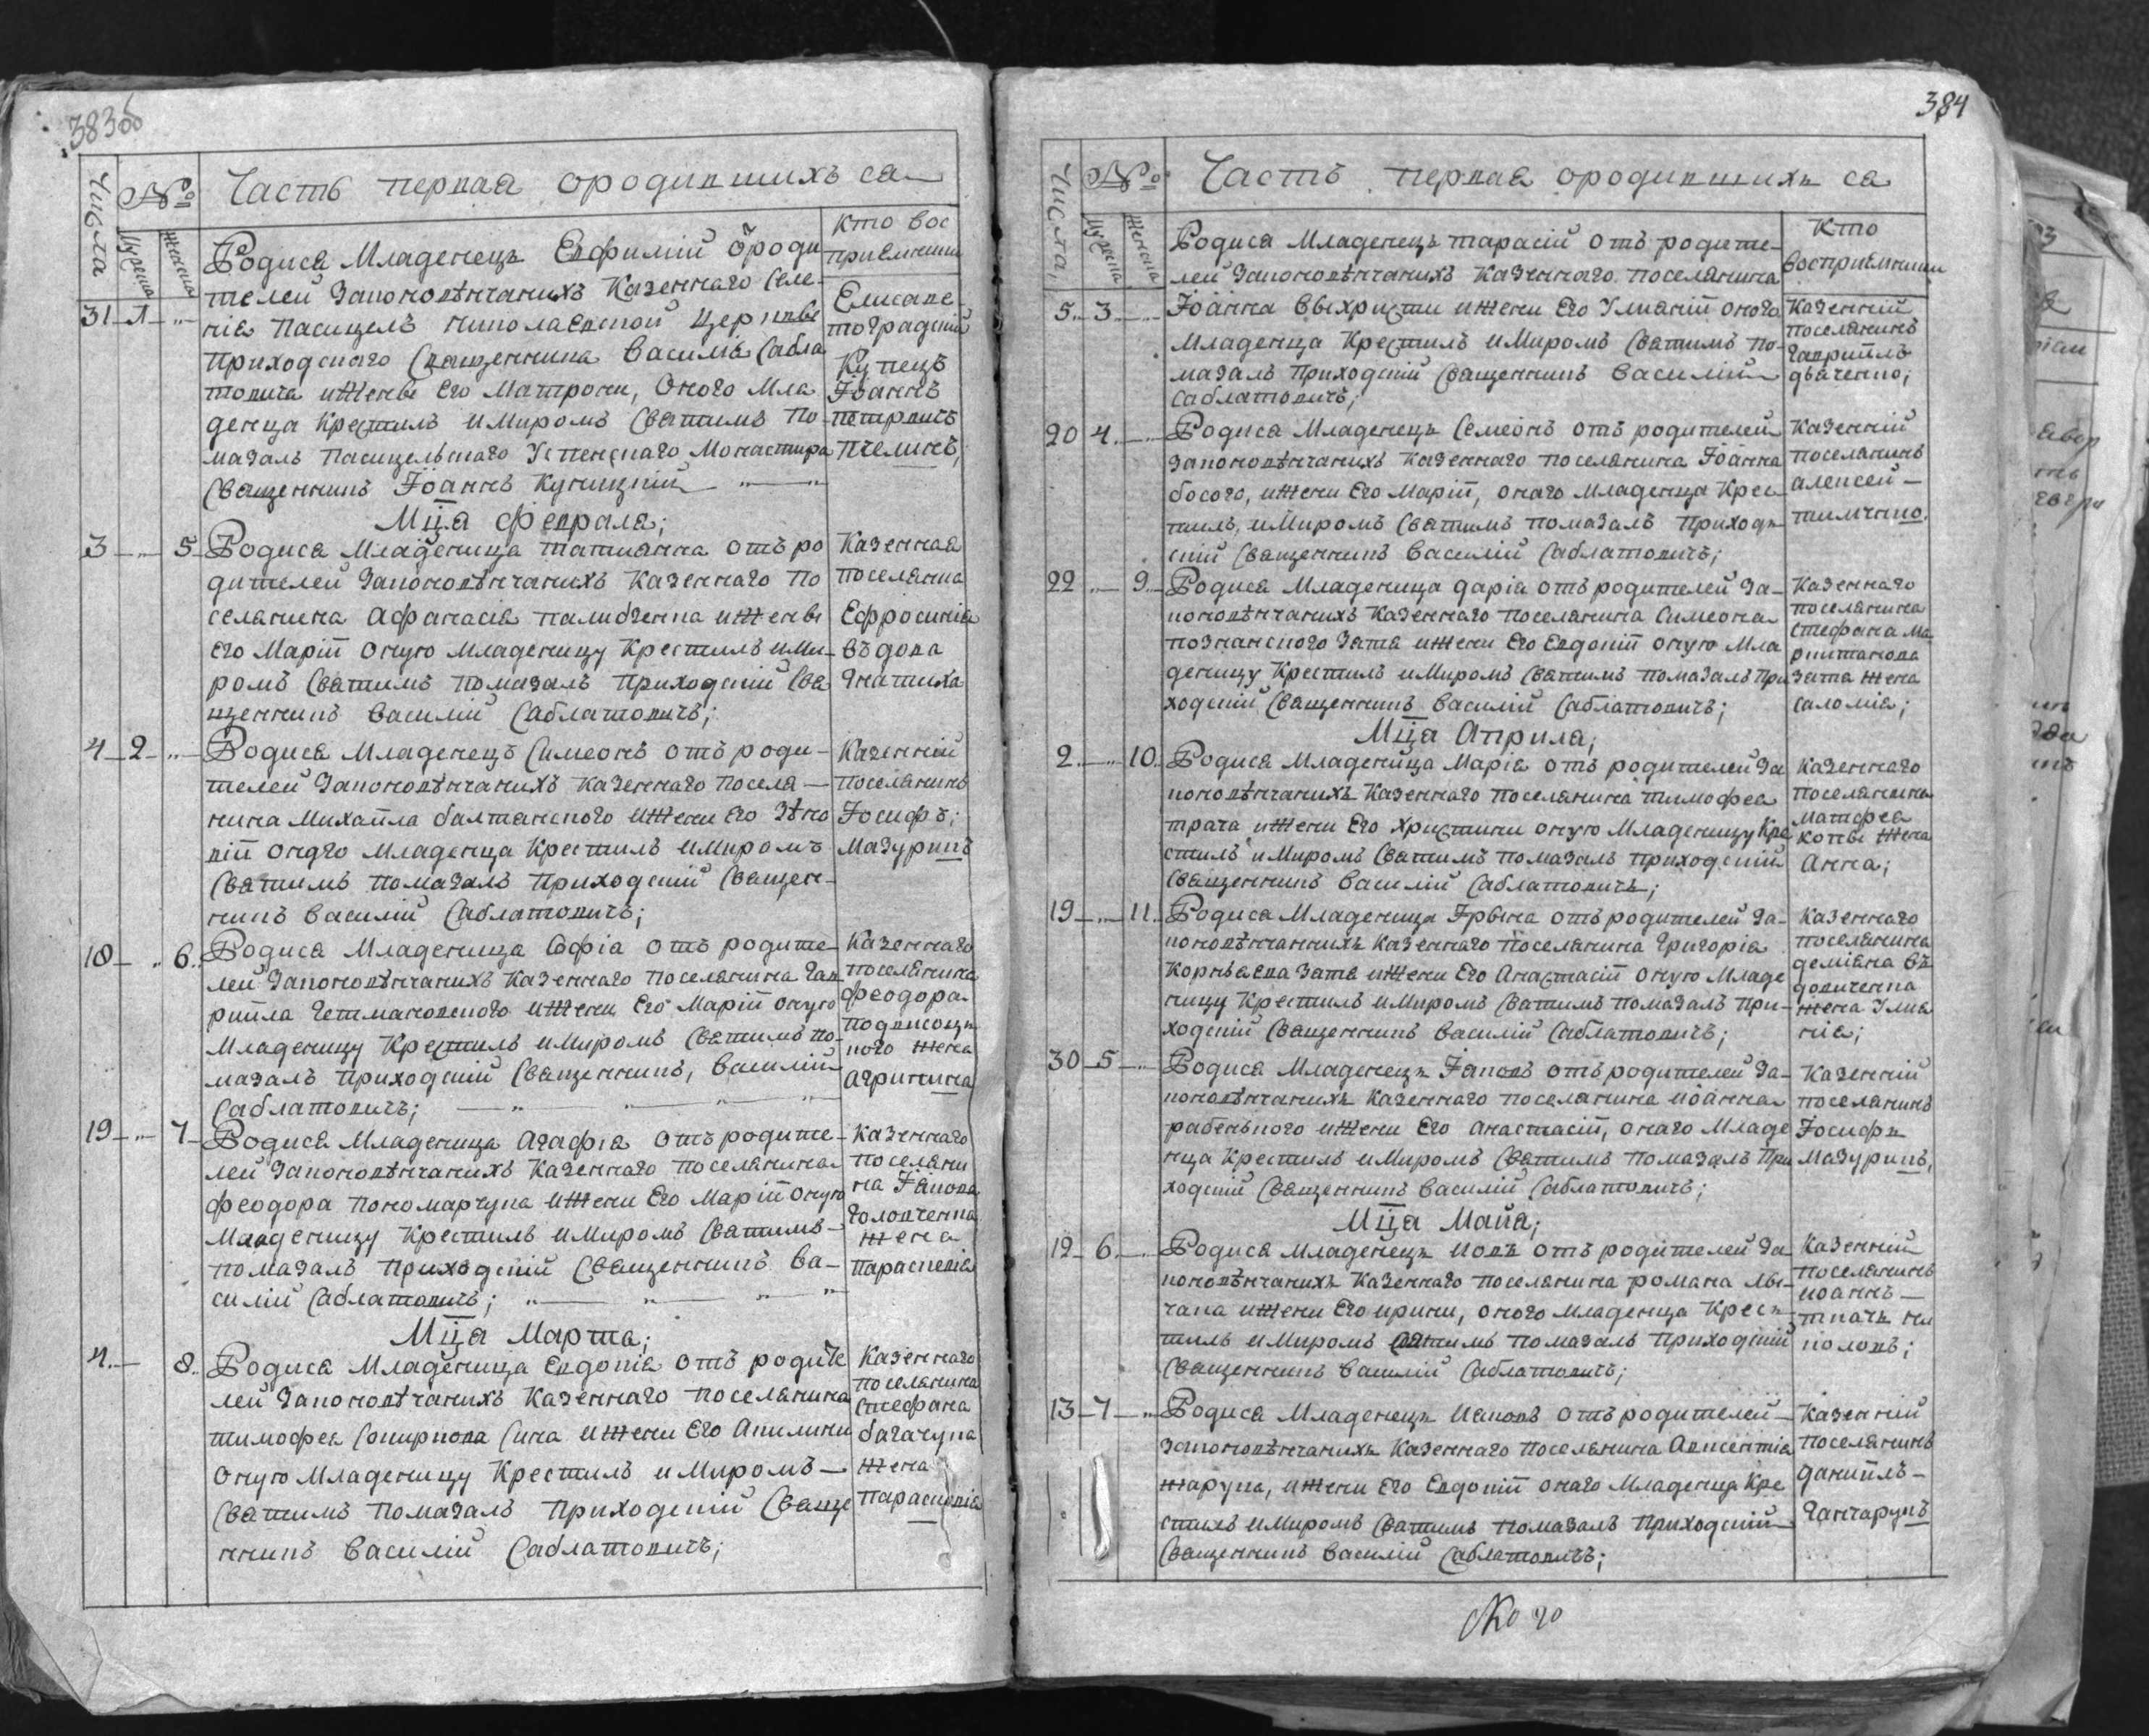 383об
Числа
№
Мужеска
Женска
Часть первая ородившихъ ся
Кто вос
приемники
Родися Младенецъ Евфимий ѿроди
телей Законовѣнчанихъ Казеннаго Селе-
31 1
нія Пасицелъ Николаевской Церкве
Приходского Священника Василія Сабла
товича иЖенѣ Его Матрони, Оного Мла
денца Крестилъ иМиромъ Святимъ По-
мазалъ Пасицельскаго Успенского Монастира
Священникъ Іоаннъ Куницкий
Елисаве
тоградский
Купецъ
Іоаннъ
Петровичъ
Пчелинъ;
Мца Февраля;
3 5
Родися Младеница Татиянна отъ ро
дителей Законовѣнчанихъ Казеннаго По
селянина Афанасія палибченка иЖенѣ
Его Маріи оную Младеницу Крестилъ иМи-
ромъ Святимъ Помазалъ Приходский Свя
щенникъ Василій Саблатовичъ;
Казенная
поселянка
Ефросинія
въдова
Гнатиха
4 2
Родися Младенецъ Симеонъ отъ роди-
телей Законовѣнчанихъ Казеннаго Поселя-
нина Михаила балтанского иЖени Его Зѣно
віи онаго Младенца Крестилъ иМиромъ
Святимъ Помазалъ Приходский Священ-
никъ Василій Саблатовичъ;
Казенний
Поселянинъ
Іосифъ;
Мазурикъ
18 6
Родися Младеница Софіа отъ родите-
лей Законовѣнчанихъ Казеннаго Поселянина Гав
риила Гетмановского иЖени Его Маріи оную
Младеницу Крестилъ иМиромъ Святимъ по-
мазалъ Приходский Священникъ, Василій
Саблатовичъ;
Казеннаго
поселянина
Феодора
Подвисоцъ
кого Жена
Агрипина
19 7
Родися Младеница Агафіа отъ родите-
лей Законовѣнчанихъ Казеннаго Поселянина
Феодора Пономарчука иЖени Его Маріи оную
Младеницу Крестилъ иМиромъ Святимъ
помазалъ Приходский Священникъ Ва-
силій Саблатовичъ;
Казеннаго
Поселяни
на Іакова
Головченка
Жена
Параскевіа
Мца Марта;
4 8
Родися Младеница Евдокіа отъ родите
лей Законовѣчанихъ Казеннаго Поселянина
тимофея Смирнова Сина иЖени Его Акилини
оную Младеницу Крестилъ иМиромъ
Святимъ Помазалъ Приходский Свяще
нникъ Василій Саблатовичъ;
Казеннаго
поселянина
Стефана
багачука
Жена
Параскевіа
384
Числа,
№
Мужеска
Женска
Часть первая ородившихъ ся
Кто
восприемники
Родися Младенецъ тарасій отъ родите-
лей Законовѣнчанихъ Казеннаго поселянина
5 3
Іоанна выхристи иЖени Его Улианіи оного
Младенца Крестилъ иМиромъ Святимъ По-
мазалъ Приходский Священникъ Василій
Саблатовичъ;
Казенний
поселянинъ
Гавриилъ
дяченко;
20 4
Родися Младенецъ Семеонъ отъ родителей
Законовѣнчанихъ Казеннаго Поселянина Іоанна
босого, иЖени Его Маріи, онаго Младенца Крес
тилъ, иМиромъ Святимъ помазалъ Приход
ский Священникъ Василій Саблатовичъ;
Казенний
поселянинъ
алексей
тимчико.
22 9
Родися Младеница дарія отъ родителей За-
коновѣнчанихъ Казеннаго Поселянина Симеона
познанского Зятя иЖени Его Евдокіи оную Мла
деницу Крестилъ иМиромъ Святимъ помазалъ При
ходский Священникъ Василій Саблатовичъ;
Казеннаго
поселянина
Стефана Ма
ританова
Зятя Жена
Саломіа;
Мца Априла;
2 10
Родися Младеница Маріа отъ родителей За
коновѣнчанихъ Казеннаго Поселянина тимофея
трача иЖени Его Христини оную Младеницу Кре
стилъ иМиромъ Святимъ помазалъ приходский
Священникъ Василій Саблатовичъ;
Казеннаго
поселянина
Матфея
Копы Жена
Анна;
19 11
Родися Младеница Ірына отъ родителей За-
коновѣнчаннихъ Казеннаго Поселянина Григоріа
Корнѣева Зятя иЖени Его Анастасіи оную Младе
ницу Крестилъ иМиромъ Святимъ Помазалъ При-
ходский Священникъ Василій Саблатовичъ;
Казеннаго
поселянина
деміана въ
довиченка
Жена Улиа
ніа;
30 5
Родися Младенецъ Іаковъ отъ родителей За-
коновѣнчанихъ Казеннаго Поселянина иоанна
рабенького иЖени Его Анастасіи, онаго Младе
нца Крестилъ иМиромъ Святимъ Помазалъ При
ходский Священникъ Василій Саблатовичъ;
Казенний
поселянинъ
Іосифъ
Мазурикъ,
Мца Майа;
12 6
Родися Младенецъ Иовъ отъ родителей За
коновѣнчанихъ Казеннаго Поселянина романа лы-
чака иЖени Его ирини, оного Младенца Крес
тилъ иМиромъ Святимъ Помазалъ Приходский
Священникъ Василій Саблатовичъ;
Казенний
Поселянинъ
иоаннъ
ткачъ ни
коловъ;
13 7
Родися Младенецъ Иаковъ отъ родителей
Законовѣнчанихъ Казеннаго Поселянина Авксентіа
Жарука, иЖени Его Евдокіи онаго Младенца Кре
стилъ иМиромъ Святимъ Помазалъ Приходский
Священникъ Василій Саблатовичъ;
Казенний
Поселянинъ
даниилъ
Ганчарукъ